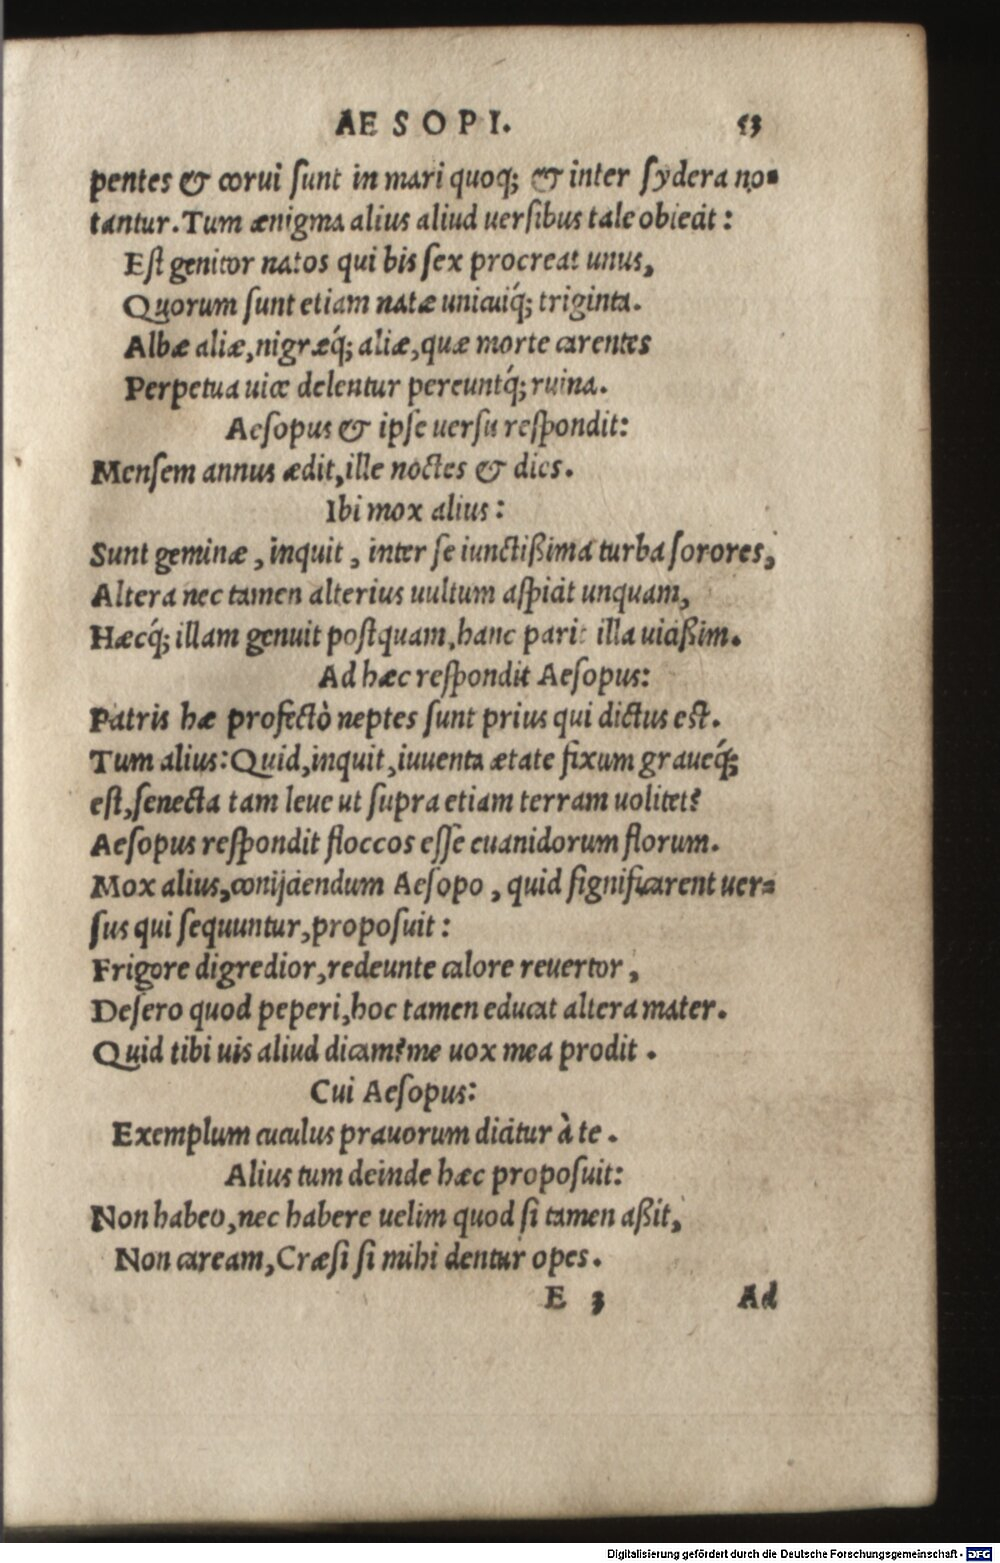 AESOPI. 53
pentes & corui sunt in mari quoq; & inter sydera no-
tantur. Tum ænigma alius aliud uersibus tale obiecit:
Est genitor natos qui bis sex procreat unus,
Quorum sunt etiam natæ unicuiq́; triginta.
Albæ aliæ, nigræq́; aliæ, quæ morte carentes
Perpetua uice delentur pereuntq́; ruina.
Aesopus & ipse uersu respondit:
Mensem annus ædit, ille noctes & dies.
Ibi mox alius:
Sunt geminæ, inquit, inter se iunctißima turba sorores,
Altera nec tamen alterius uultum aspicit unquam,
Hæcq́; illam genuit postquam, hanc parit illa uicißim.
Ad hæc respondit Aesopus:
Patris hæ profectò neptes sunt prius qui dictus est.
Tum alius: Quid, inquit, iuuenta ætate fixum graueq́;
est, senecta tam leue ut supra etiam terram uolitet?
Aesopus respondit floccos esse euanidorum florum.
Mox alius, conijciendum Aesopo, quid significarent uer-
sus qui sequuntur, proposuit:
Frigore digredior, redeunte calore reuertor,
Desero quod peperi, hoc tamen educat altera mater.
Quid tibi uis aliud dicam? me uox mea prodit.
Cui Aesopus:
Exemplum cuculus prauorum dicitur à te.
Alius tum deinde hæc proposuit:
Non habeo, nec habere uelim quod si tamen aßit,
Non caream, Cræsi si mihi dentur opes.
E 3 Ad
Digitalisierung gefördert durch die Deutsche Forschungsgemeinschaft - DFG